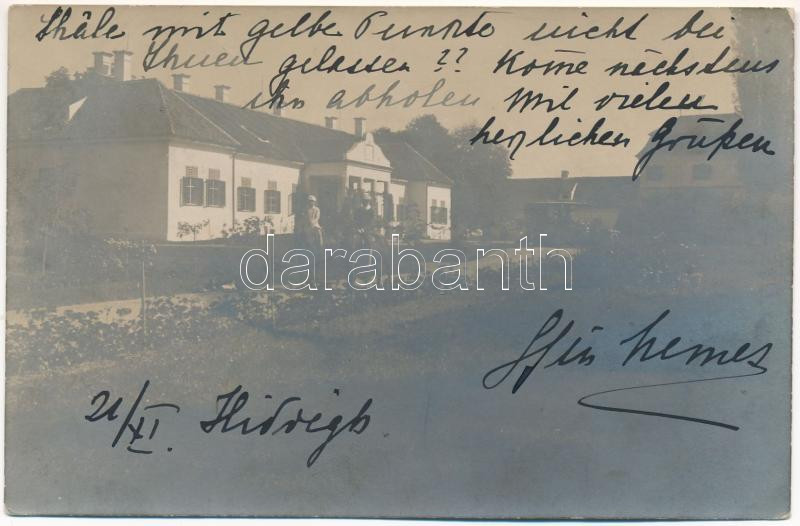 Shäle mit gelbe Punkte nicht bei
Ihnen gelassen ?? Kome nächstens
ihn abholen Mit vielen
herzlichen Grüßen
darabanth
Nemes
21/XI. Hidvégh.